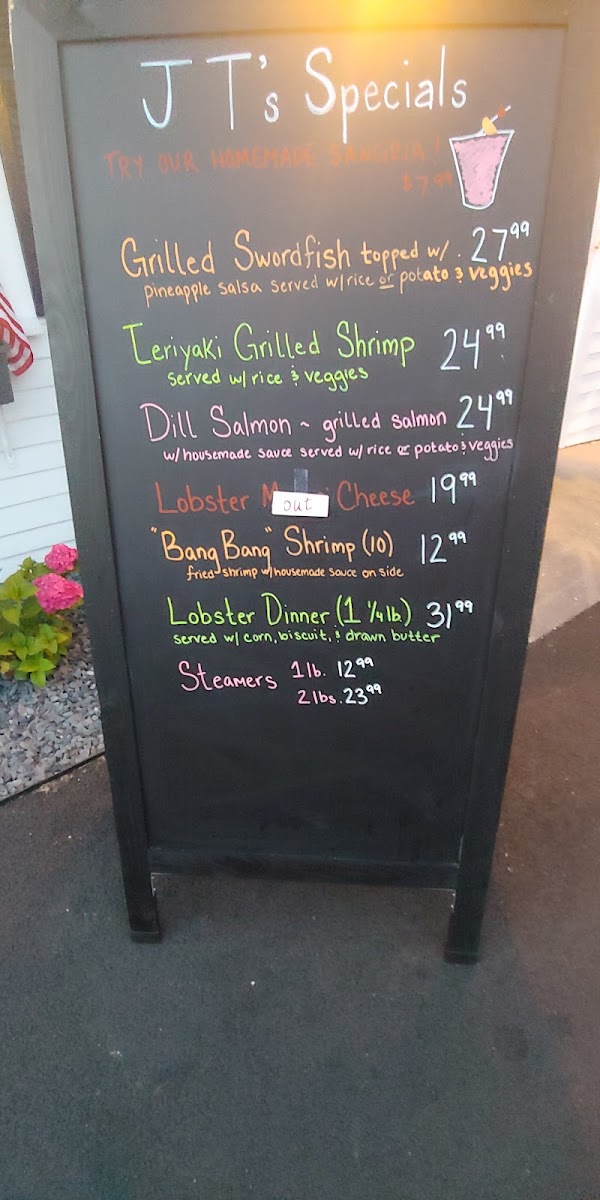 J T's Specials
TRY OUR HOMEMADE SANGRIA!
$7.99
Grilled Swordfish topped w/ . 27⁹⁹
pineapple salsa served w/rice or potato & veggies
Teriyaki Grilled Shrimp 24⁹⁹
served w/ rice & veggies
Dill Salmon ~ grilled salmon 24⁹⁹
w/housemade sauce served w/ rice or potato & veggies
Lobster Cheese 19⁹⁹
out
"Bang Bang" Shrimp (10) 12⁹⁹
fried shrimp w/housemade sauce on side
Lobster Dinner (1 1/4 lb.) 31⁹⁹
served w/ corn, biscuit, & drawn butter
Steamers 1 lb. 12⁹⁹
2 lbs. 23⁹⁹